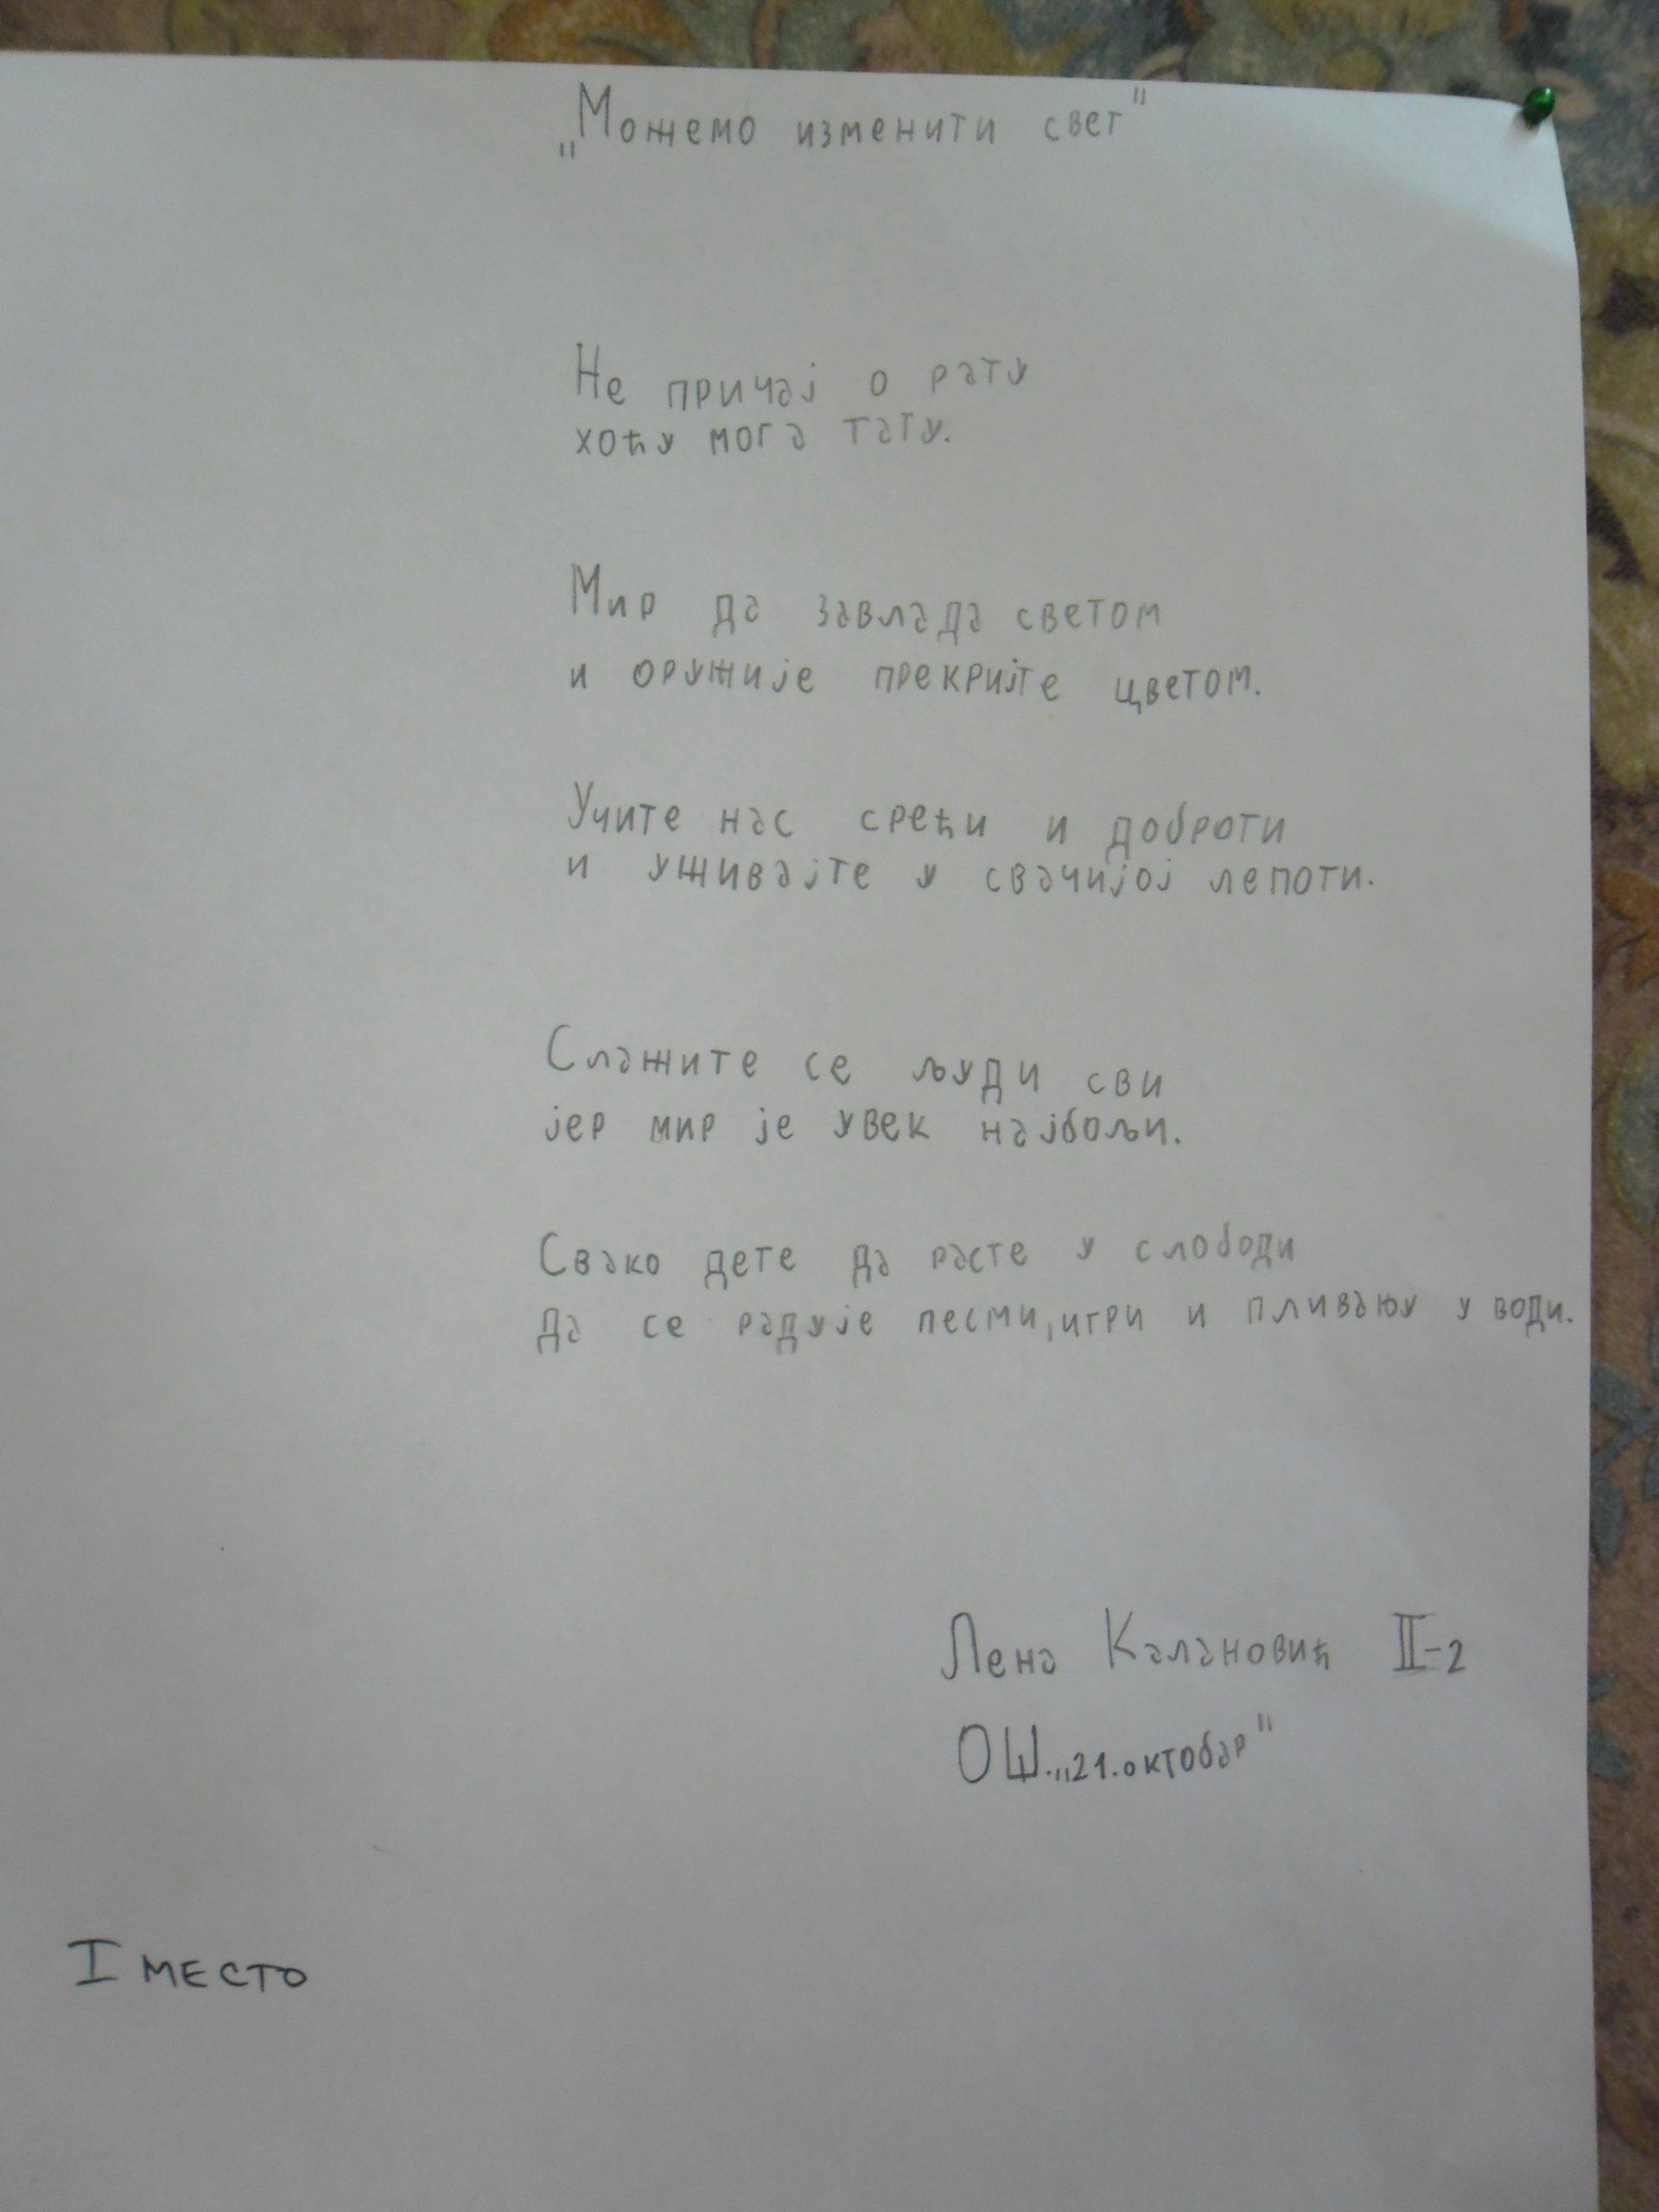 „Можемо изменити свет"
Не причај о рату
хоћу мога тату.
Мир да завлада светом
и оружије прекријте цветом.
Учите нас срећи и доброти
и уживајте у свачијој лепоти.
Слажите се људи сви
јер мир је увек најбољи.
Свако дете да расте у слободи
да се радује песми, игри и пливању у води.
Лена Калановић II-2
ОШ. „21. октобар"
I МЕСТО